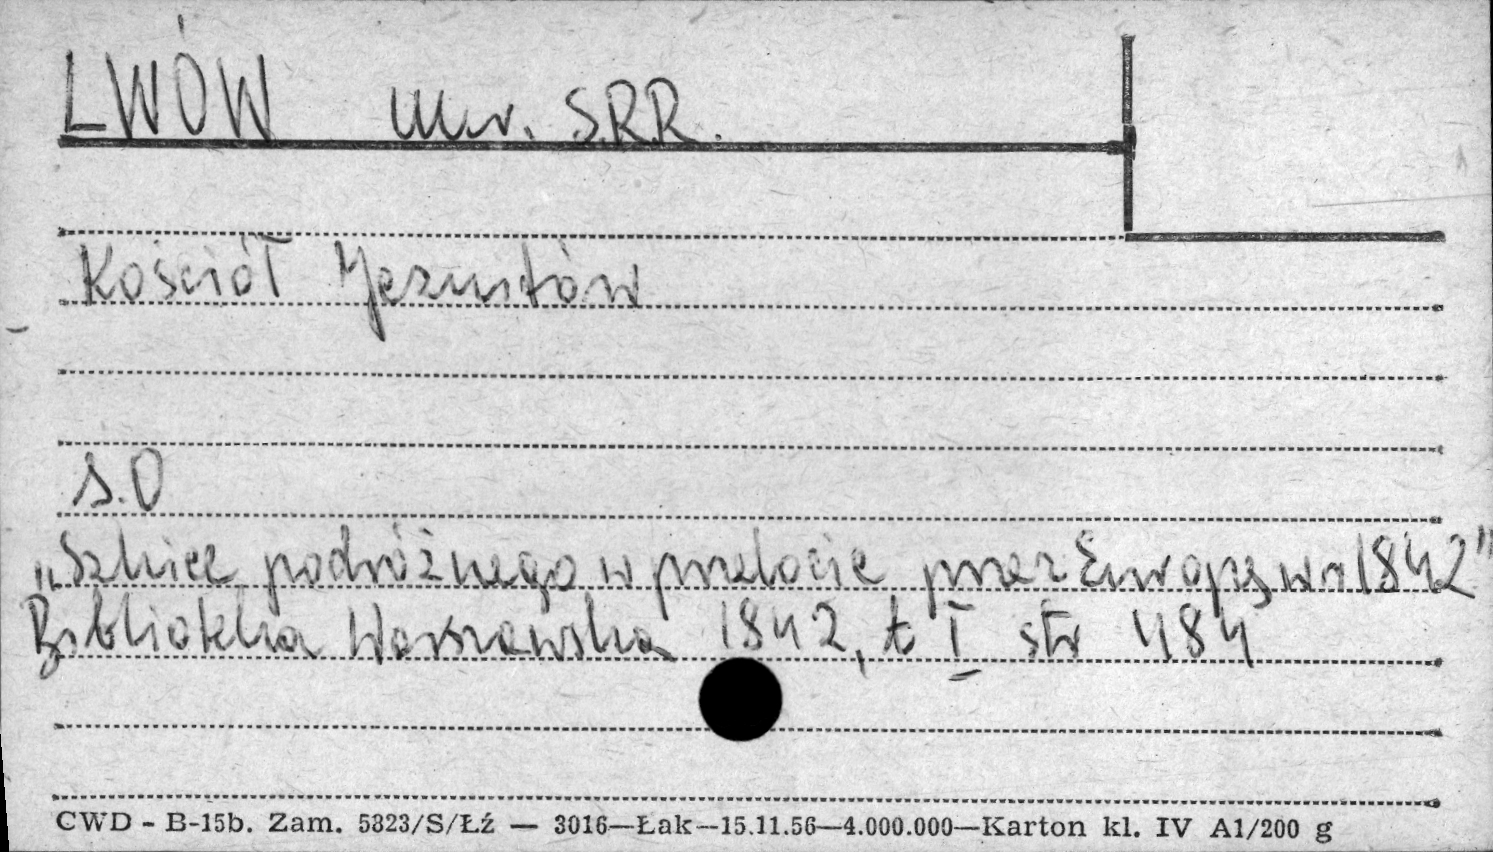 LWÓW Ukr. S.R.R.
Kościół Jezuitów
S.O
„Szkice podróżnego w przelocie przez Europę w r 1842"
Biblioteka Warszawska 1842, t I str 484
CWD - B-15b. Zam. 5823/S/Łź — 3016—Łak—15.11.56—4.000.000—Karton kl. IV A1/200 g